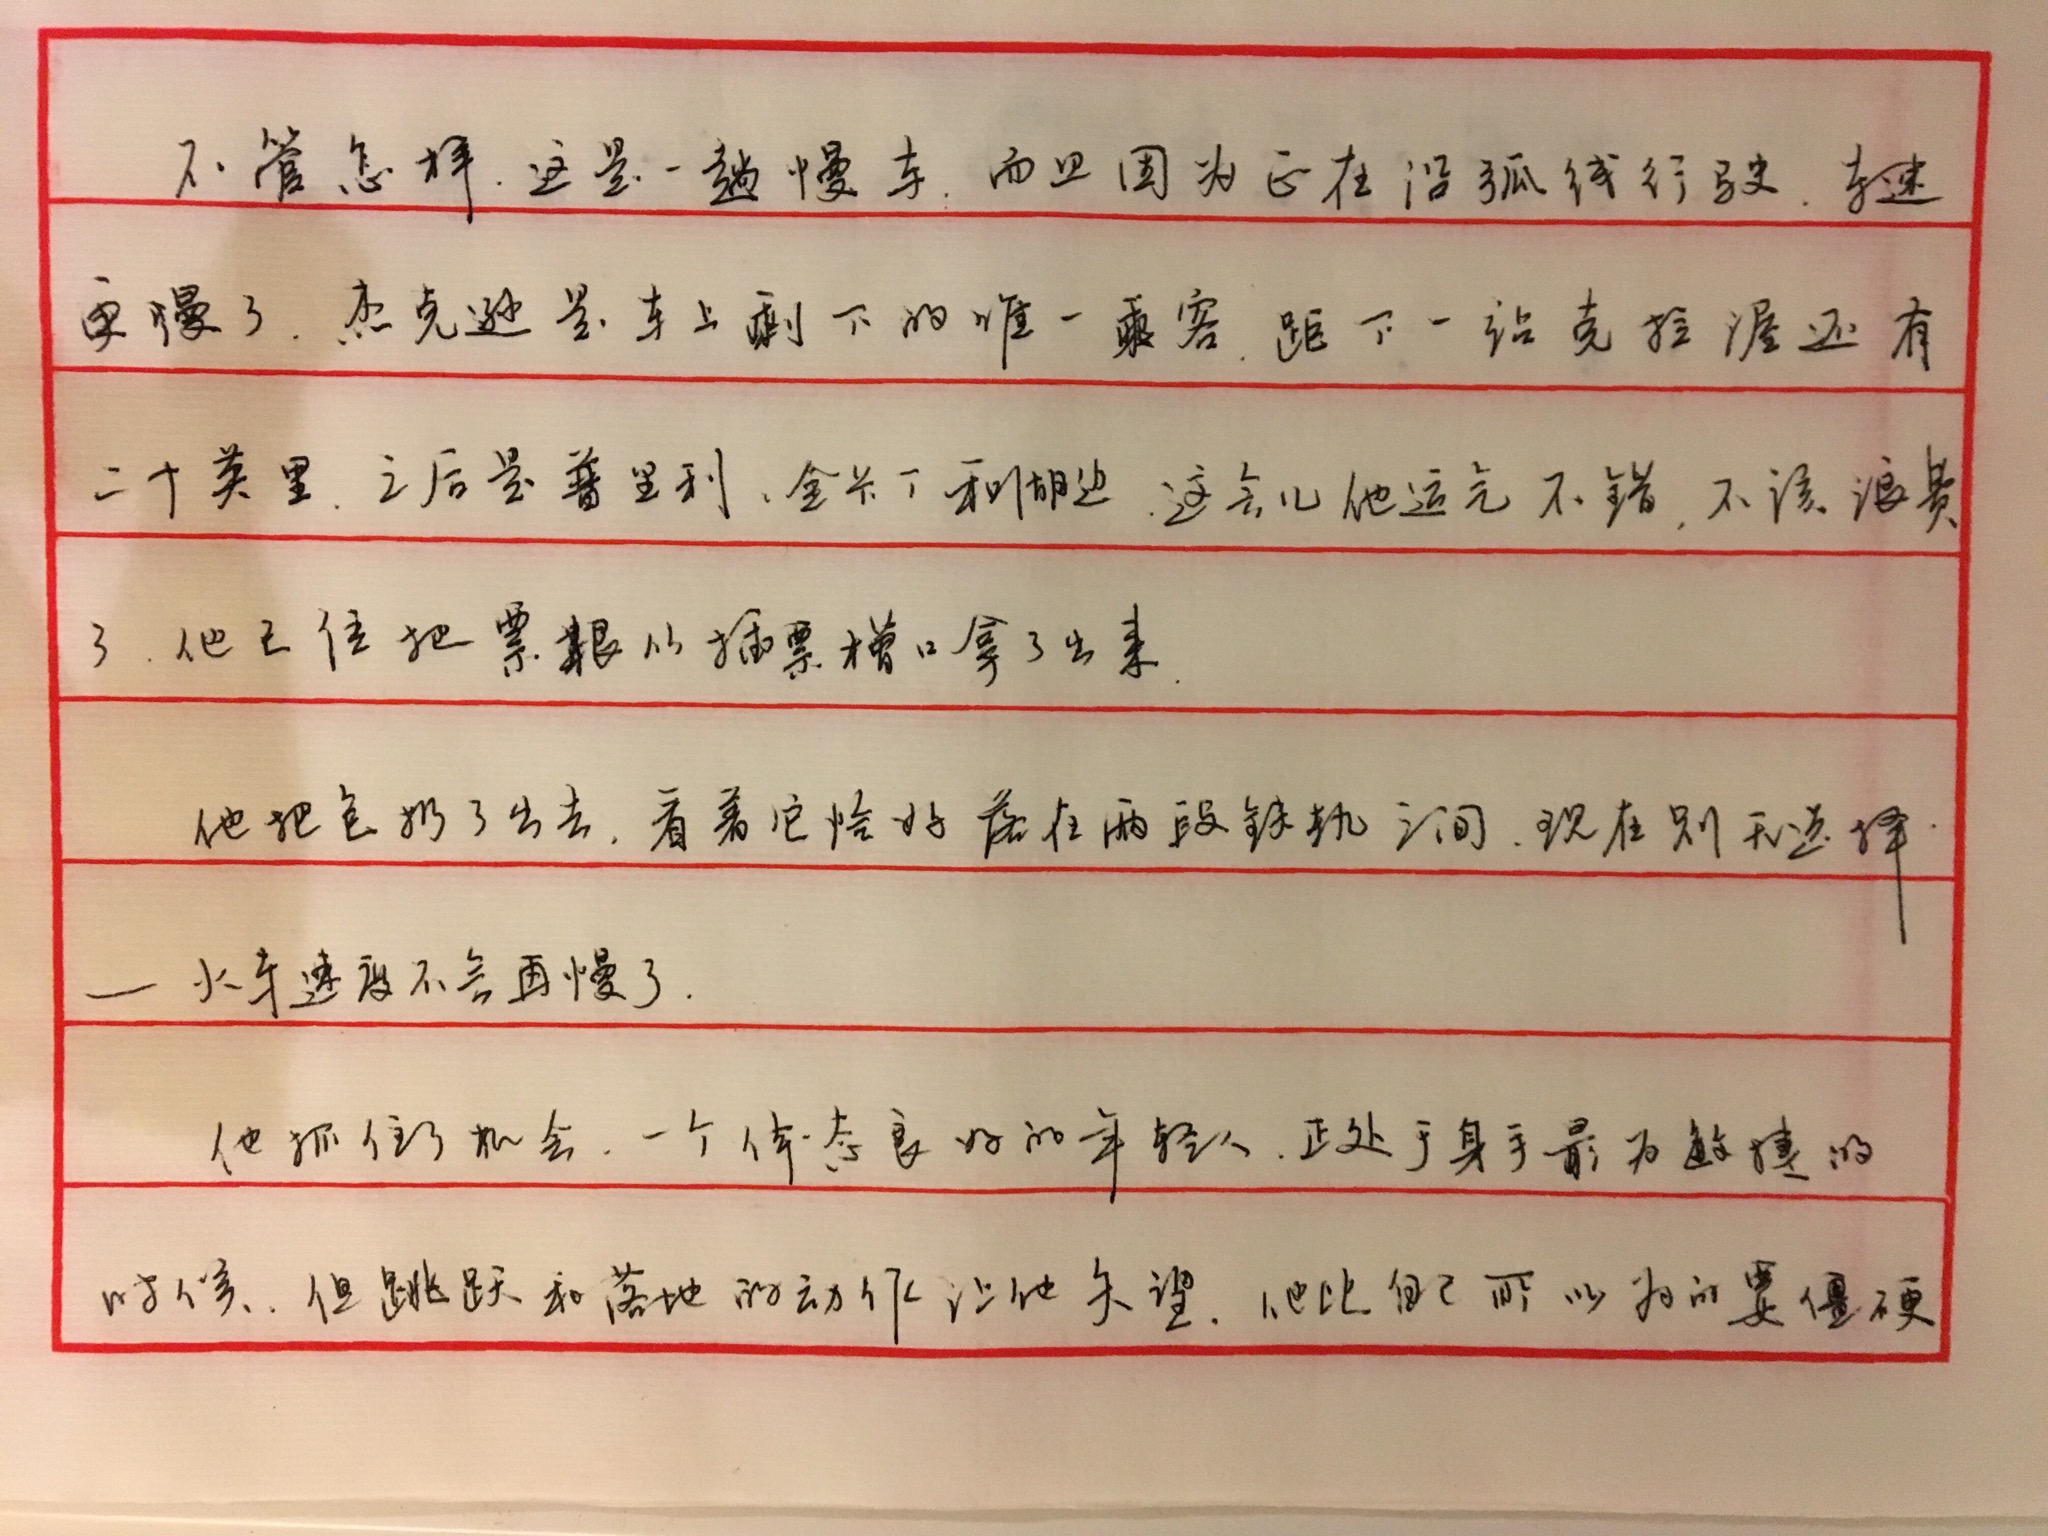 不管怎样,这是一趟慢车,而且因为正在沿弧线行驶,车速
更慢了.杰克逊是车上剩下的唯一乘客.距下一站克拉渥还有
二十英里,之后是普里利、金卡丁和湖边.这会儿他运气不错,不该浪费
了.他已经把票根从插票槽口拿了出来.
他把包扔了出去,看着它恰好落在两段铁轨之间.现在别无选择.
—火车速度不会再慢了.
他抓住了机会.一个体态良好的年轻人,正处于身手最为敏捷的
时候.但跳跃和落地的动作让他失望.他比自己所以为的要僵硬